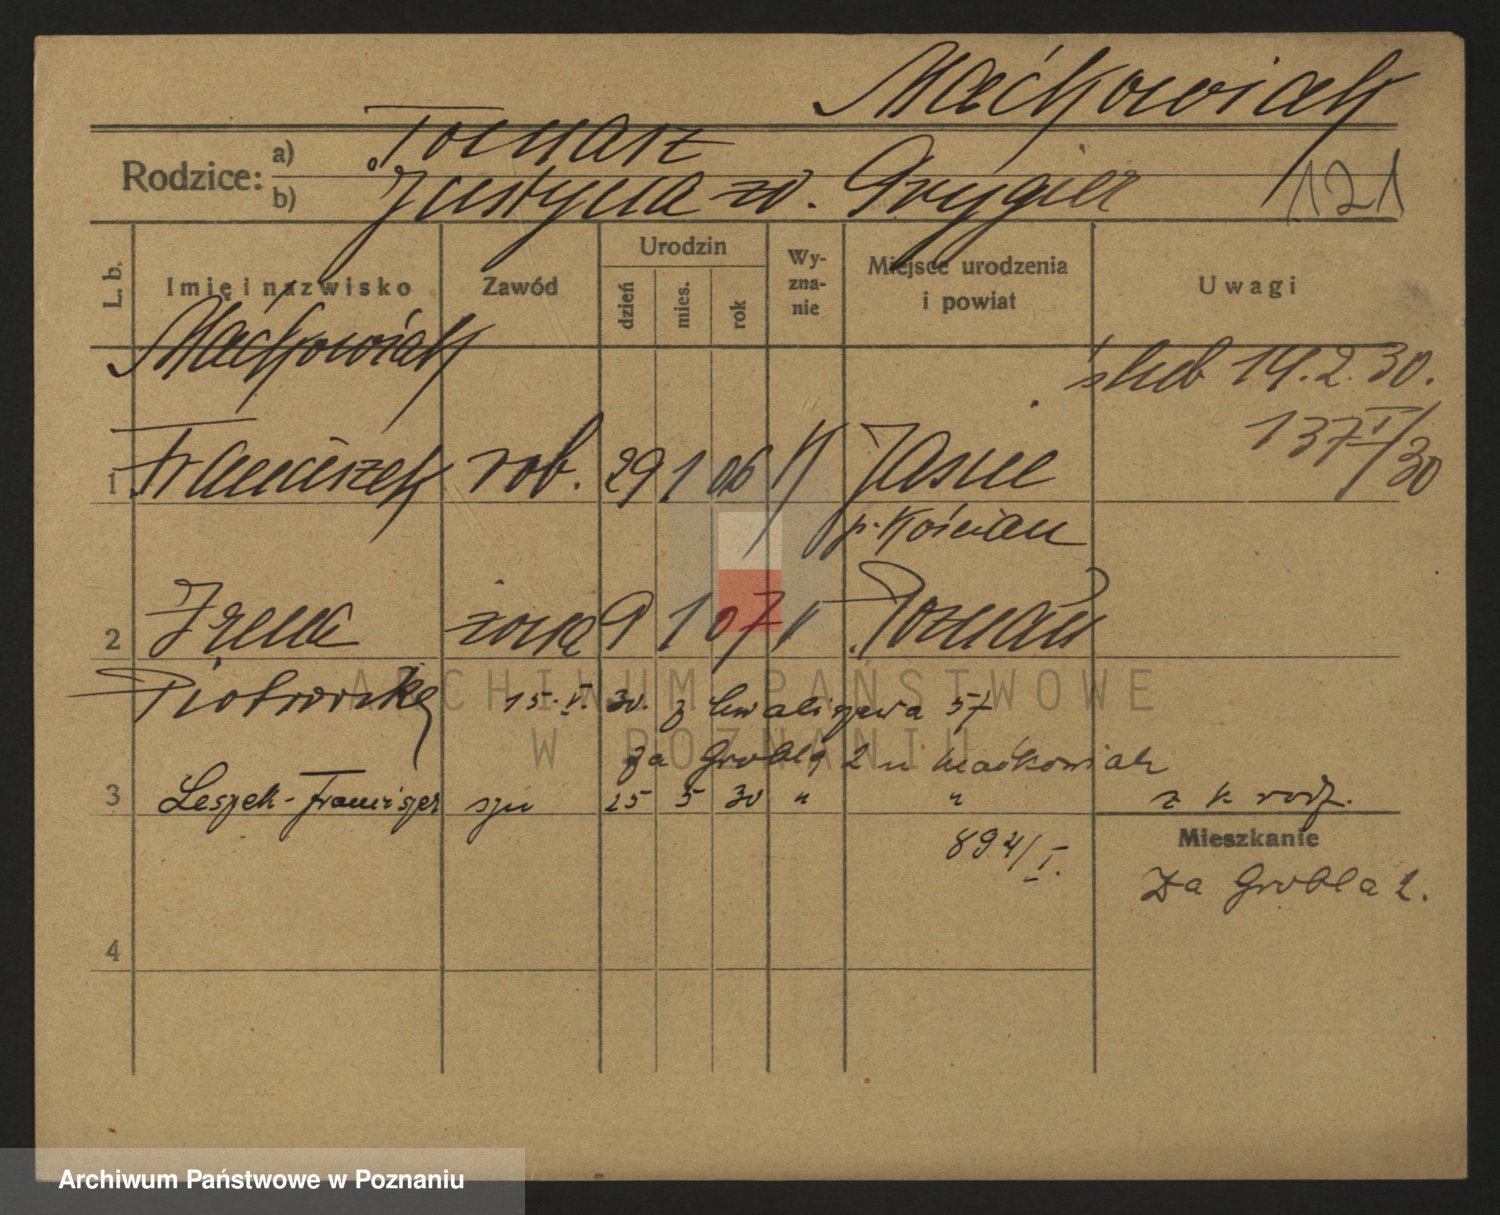 Maćkowiak
Rodzice: a) Tomasz
b) Justyna zd. Grygier
121
L. b.
Imię i nazwisko
Zawód
Urodzin
dzień
mies.
rok
Wy-
zna-
nie
Miejsce urodzenia
i powiat
Uwagi
Maćkowiak
ślub 14.2.30.
137 I/30
1 Franciszek rob. 29 1 06 K Jasne
p. Kościan
2 Irena żona 9 1 07 " Poznań
Piotrowska 15.VI.30. z Chwaliszewa 57
Za Groblą 2 u Maćkowiak
3 Leszek-Franciszek syn 25 5 30 " " z k. rodz.
894/I.
Mieszkanie
Za Groblą 2.
4
ARCHIWUM PAŃSTWOWE
W POZNANIU
Archiwum Państwowe w Poznaniu